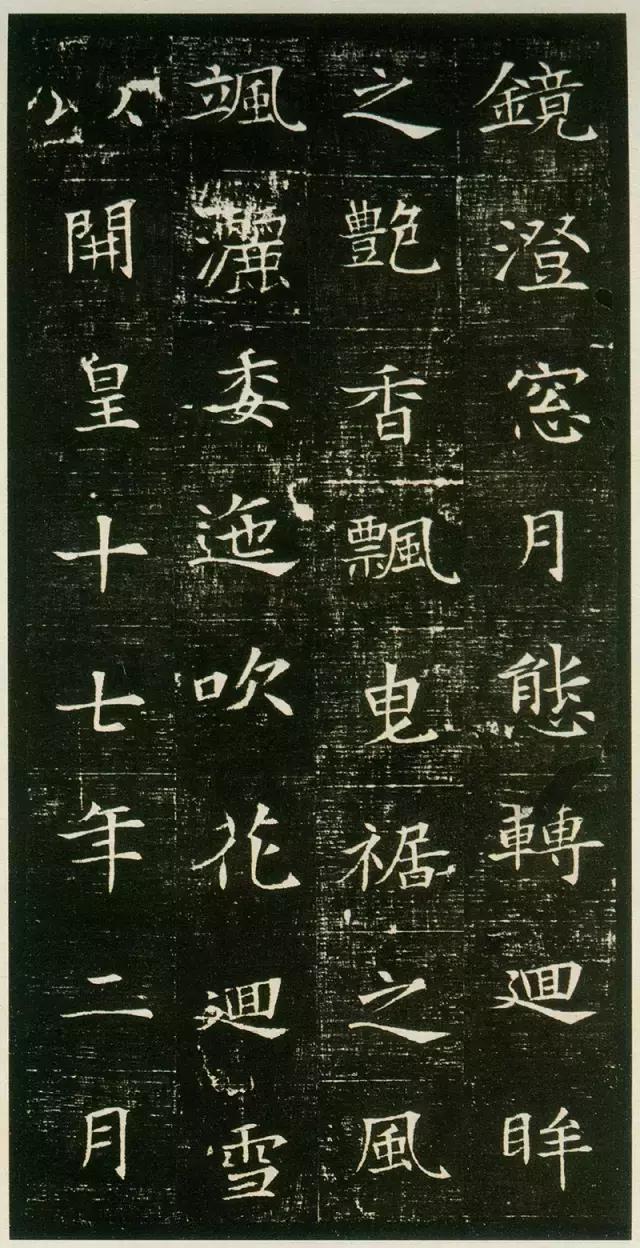 鏡澄窓月態轉迴眸
之艶香飄曳裾之風
颯灑委迤吹花迴雪
以開皇十七年二月